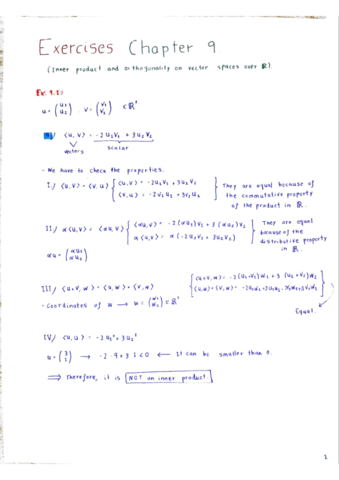 Exercises Chapter 9
(Inner product and orthogonality on vector spaces over ℝ).
Ex. 9.1:
u = (u₁ u₂) v = (v₁ v₂) ∈ ℝ²
a) ⟨u, v⟩ = -2u₁v₁ + 3u₂v₂
vectors scalar
- We have to check the properties.
I/ ⟨u,v⟩ = ⟨v,u⟩ { ⟨u,v⟩ = -2u₁v₁ + 3u₂v₂
⟨v,u⟩ = -2v₁u₁ + 3v₂u₂
They are equal because of the commutative property of the product in ℝ.
II/ α⟨u,v⟩ = ⟨αu,v⟩ { ⟨αu,v⟩ = -2(αu₁)v₁ + 3(αu₂)v₂
α⟨u,v⟩ = α(-2u₁v₁ + 3u₂v₂)
They are equal because of the distributive property in ℝ.
αu = (αu₁ αu₂)
III/ ⟨u+v,w⟩ = ⟨u,w⟩ + ⟨v,w⟩
⟨u+v,w⟩ = -2(u₁+v₁)w₁ + 3(u₂+v₂)w₂
⟨u,w⟩+⟨v,w⟩ = -2u₁w₁+3u₂w₂-2v₁w₁+3v₂w₂
- Coordinates of w → w = (w₁ w₂) ∈ ℝ²
Equal.
IV/ ⟨u,u⟩ = -2u₁² + 3u₂²
u = (3 1) → -2·9+3·1<0 ← It can be smaller than 0.
⇒ Therefore, it is NOT an inner product.
1